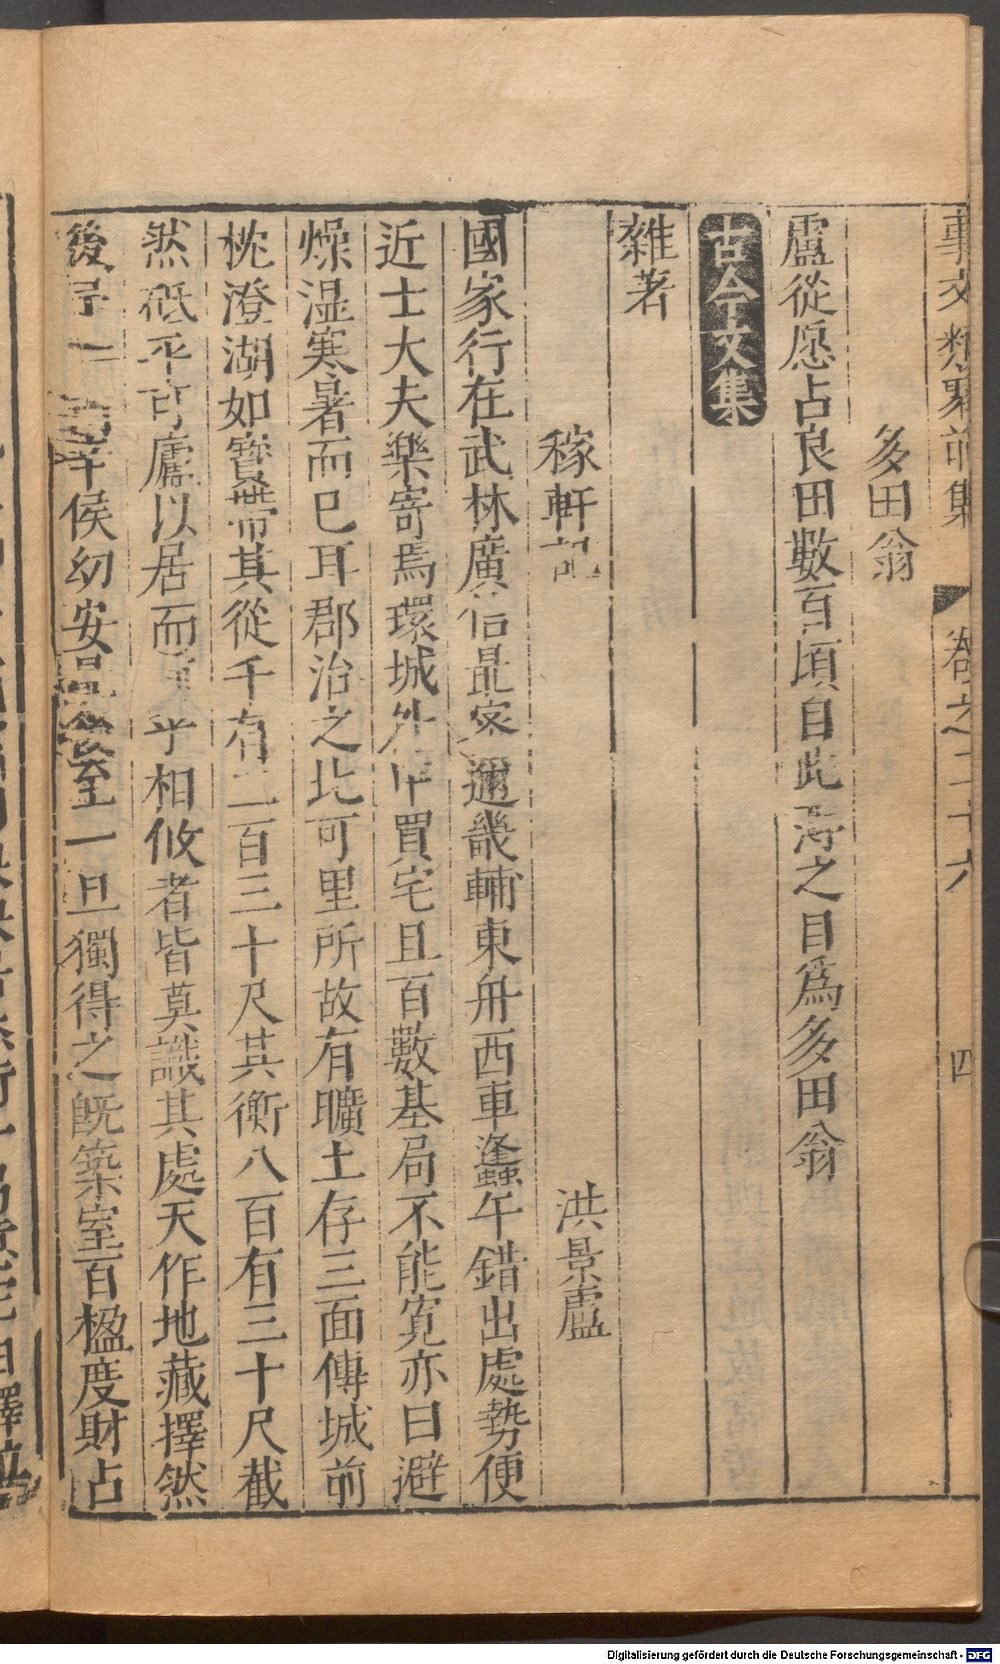 事文類聚前集 卷之三十六 四
多田翁
盧從愿占良田數百頃自此海之目爲多田翁
古今文集
雜著
稼軒記 洪景盧
國家行在武林廣信最密邇畿輔東舟西車蠭午錯出處勢便
近士大夫樂寄焉環城外中買宅且百數基局不能寬亦曰避
燥湿寒暑而已耳郡治之北可里所故有曠土存三面傅城前
枕澄湖如寶帶其從千有二百三十尺其衡八百有三十尺截
然砥平可廬以居而 乎相攸者皆莫識其處天作地藏擇然
後予一 侯幼安 至一旦獨得之既築室百楹度財占
Digitalisierung gefördert durch die Deutsche Forschungsgemeinschaft - DFG